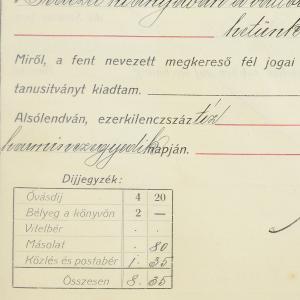 hetünk
Miről, a fent nevezett megkereső fél jogai
tanusitványt kiadtam.
Alsólendván, ezerkilenczszáz tíz
harminczegyedik napján.
Díjjegyzék:
Óvásdíj 4 20
Bélyeg a könyvön 2 —
Vitelbér . .
Másolat . 80
Közlés és postabér 1 35
Összesen 8 35